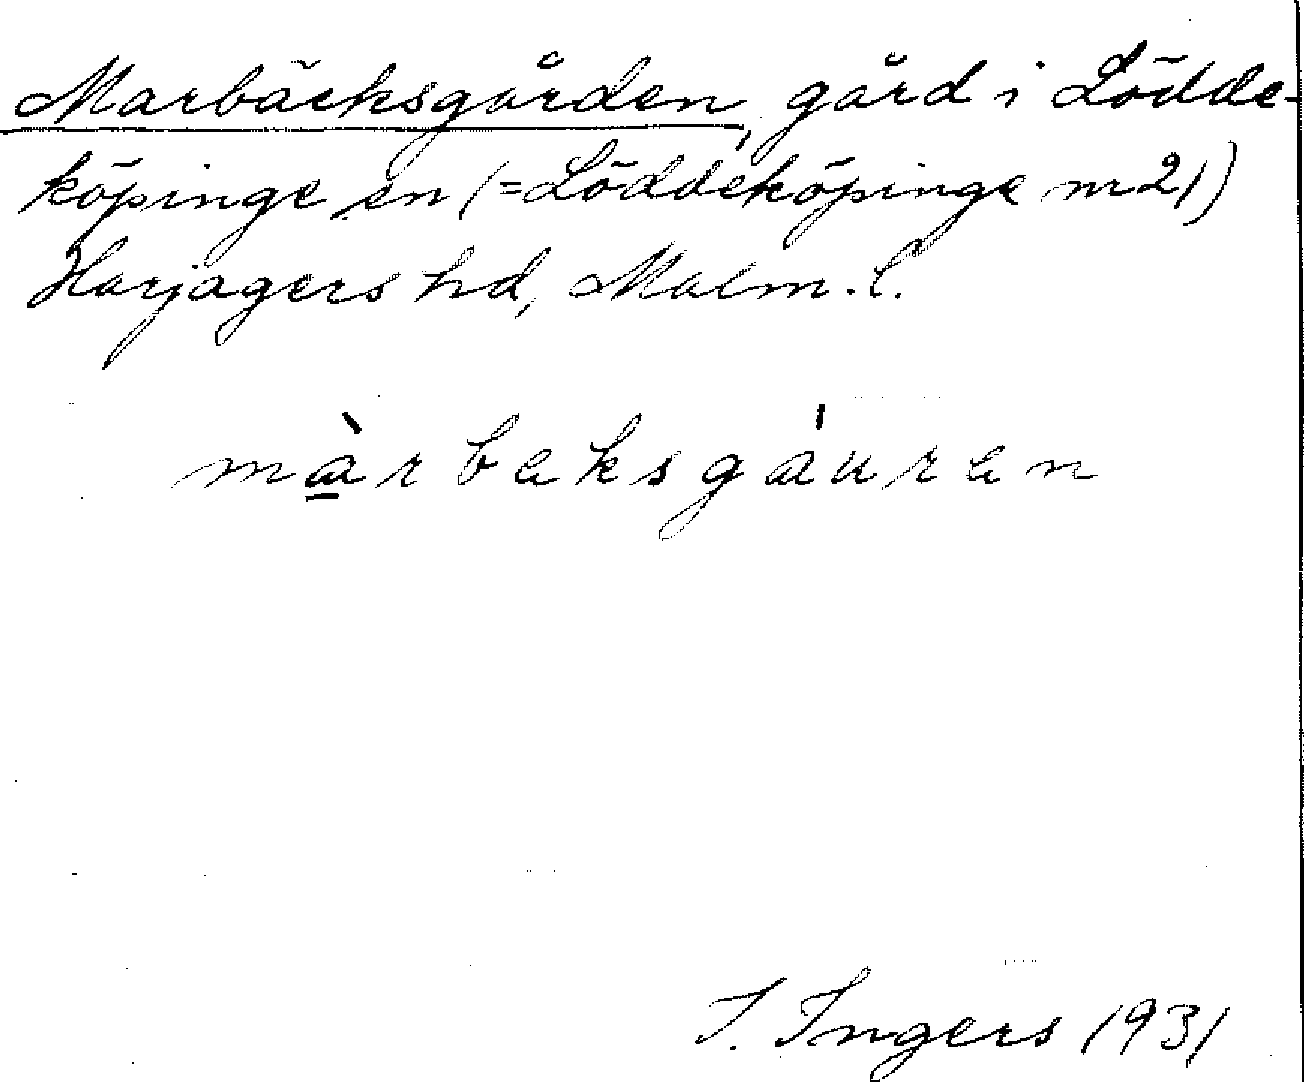 Marbäcksgården, gård i Lödde-
köpinge sn (=Löddeköpinge nr 21)
Harjagers hd, Malm. l.
màrbeksgáuren
I. Ingers 1931